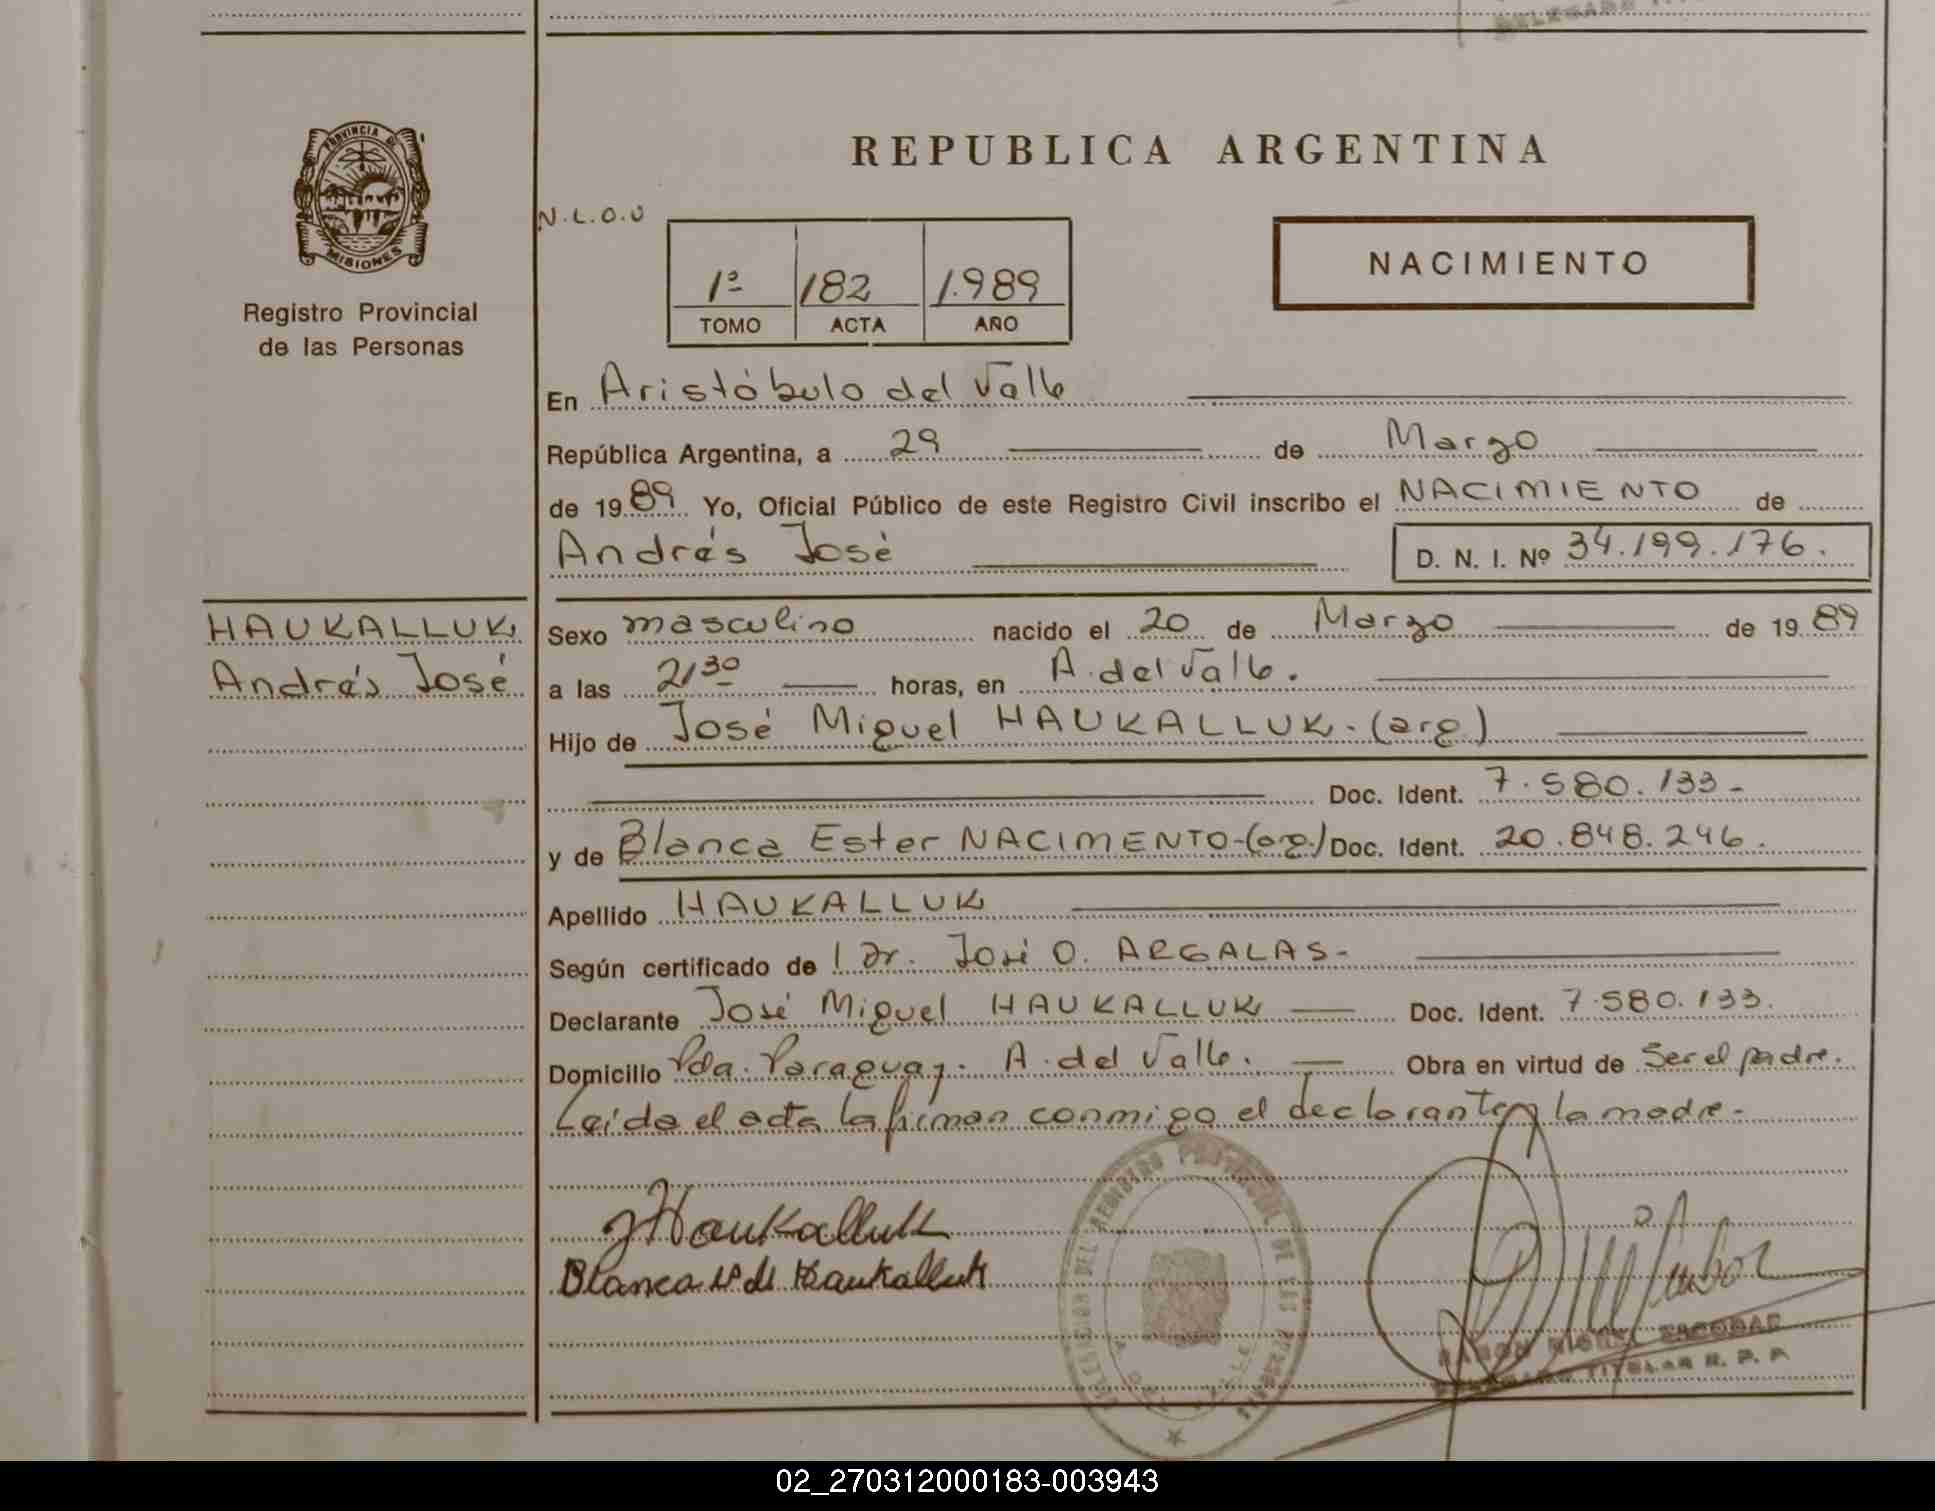 PROVINCIA DE
MISIONES
Registro Provincial
de las Personas
REPUBLICA ARGENTINA
N.L.O.U
1º 182 1.989
TOMO ACTA AÑO
NACIMIENTO
En Aristóbulo del Valle
República Argentina, a 29 de Marzo
de 1989 Yo, Oficial Público de este Registro Civil inscribo el NACIMIENTO de
Andrés José D. N. I. Nº 34.199.176.
HAUKALLUK
Andrés José
Sexo masculino nacido el 20 de Marzo de 1989
a las 21 30 horas, en A. del Valle.
Hijo de José Miguel HAUKALLUK. (arg)
Doc. Ident. 7.580.133-
y de Blanca Ester NACIMENTO-(arg.) Doc. Ident. 20.848.246.
Apellido HAUKALLUK
Según certificado de l Dr. José O. ARGALAS-
Declarante José Miguel HAUKALLUK Doc. Ident. 7.580.133.
Domicilio Pda. Paraguay. A. del Valle. Obra en virtud de Ser el padre.
Leída el acta la firman conmigo el declarante y la madre-
JHaukalluk
Blanca de Haukalluk
DELEGACION DEL REGISTRO PROVINCIAL DE LAS PERSONAS
RAMON MIGUEL ESCOBAR
DELEGADO TITULAR R. P. P.
02_270312000183-003943